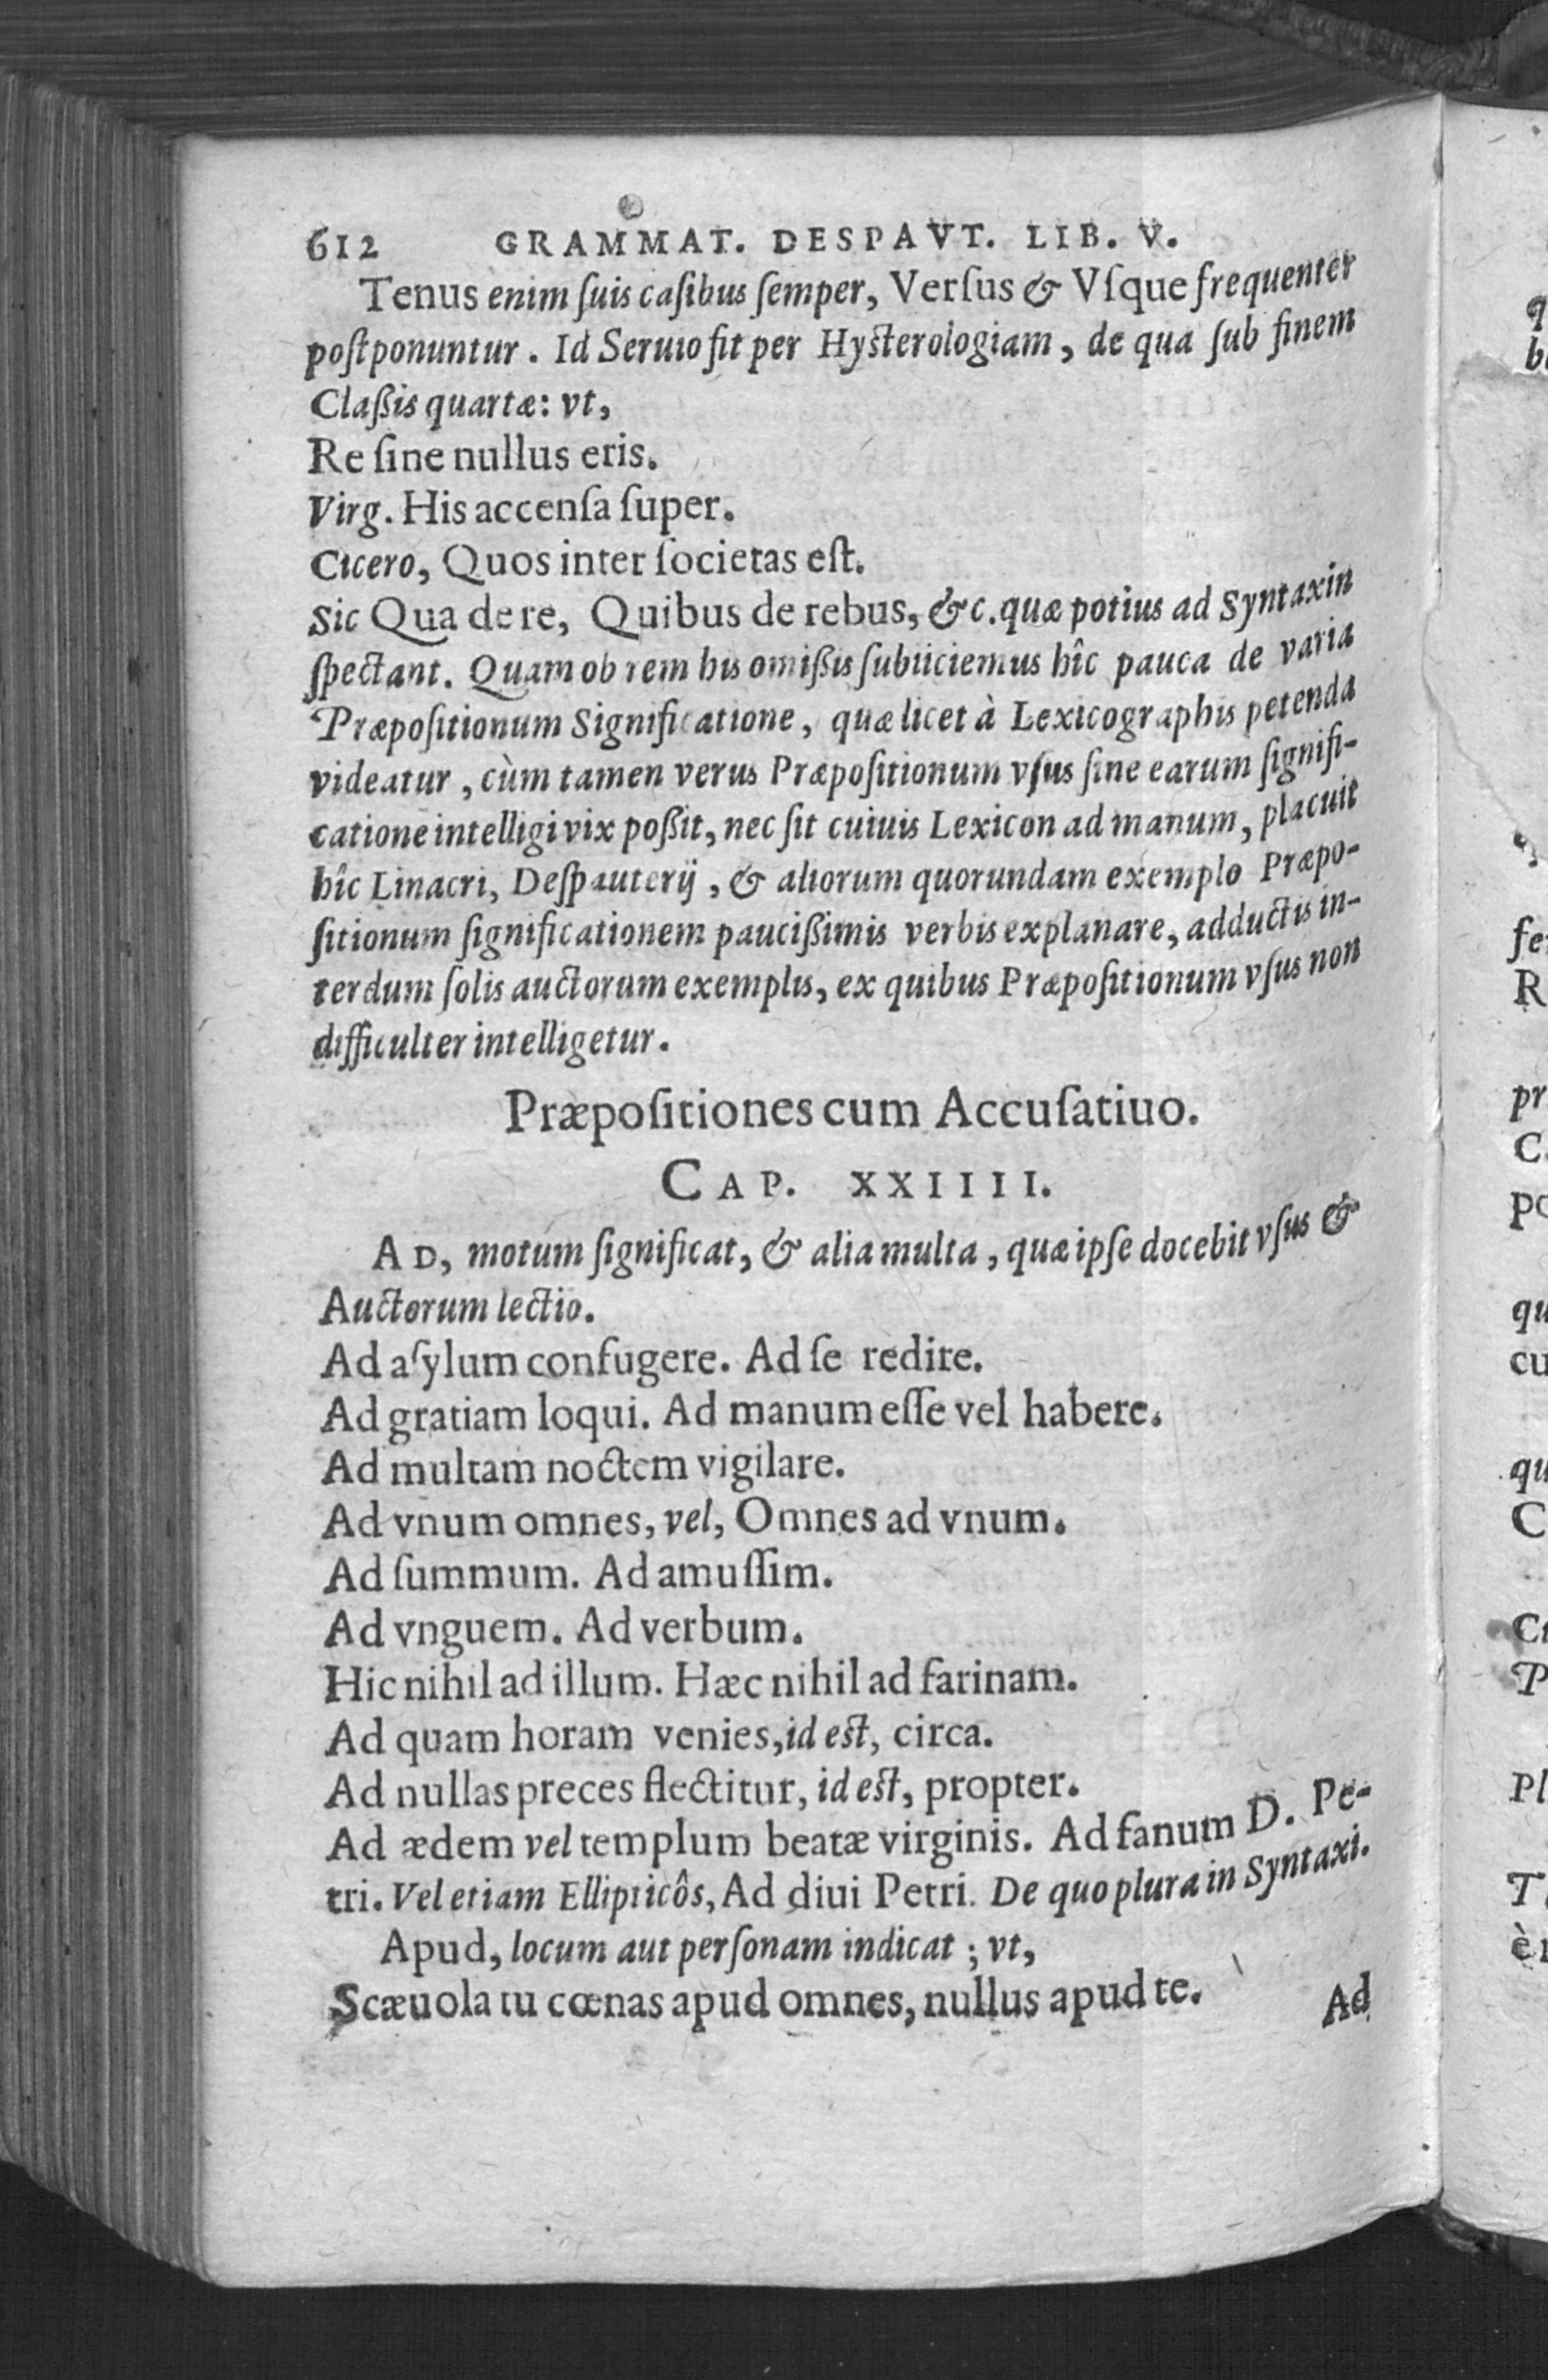 612 GRAMMAT. DESPAVT. LIB. V.
Tenus enim ſuis caſibus ſemper, Verſus & Vſque frequenter
poſtponuntur. Id Seruio fit per Hyſterologiam, de qua ſub finem
Claßis quartæ: vt,
Re ſine nullus eris.
Virg. His accenſa ſuper.
Cicero, Quos inter ſocietas eſt.
Sic Qua de re, Quibus de rebus, &c. quæ potius ad Syntaxin
ſpectant. Quam ob rem his omißis ſubiiciemus hîc pauca de varia
Præpoſitionum Significatione, quæ licet à Lexicographis petenda
videatur, cùm tamen verus Præpoſitionum vſus ſine earum ſignifi-
catione intelligi vix poßit, nec ſit cuiuis Lexicon ad manum, placuit
hîc Linacri, Deſpauterij, & aliorum quorundam exemplo Præpo-
ſitionum ſignificationem paucißimis verbis explanare, adductis in-
terdum ſolis auctorum exemplis, ex quibus Præpoſitionum vſus non
difficulter intelligetur.
Præpoſitiones cum Accuſatiuo.
CAP. XXIIII.
AD, motum ſignificat, & alia multa, quæ ipſe docebit vſus &
Auctorum lectio.
Ad aſylum confugere. Ad ſe redire.
Ad gratiam loqui. Ad manum eſſe vel habere.
Ad multam noctem vigilare.
Ad vnum omnes, vel, Omnes ad vnum.
Ad ſummum. Ad amuſſim.
Ad vnguem. Ad verbum.
Hic nihil ad illum. Hæc nihil ad farinam.
Ad quam horam venies, id eſt, circa.
Ad nullas preces flectitur, id eſt, propter.
Ad ædem vel templum beatæ virginis. Ad fanum D. Pe-
tri. Vel etiam Ellipticôs, Ad diui Petri. De quo plura in Syntaxi.
Apud, locum aut perſonam indicat; vt,
Scæuola tu cœnas apud omnes, nullus apud te.
Ad